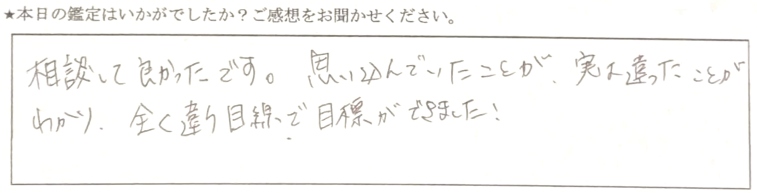 ★本日の鑑定はいかがでしたか？ご感想をお聞かせください。
相談して良かったです。思い込んでいたことが、実は違ったことが
わかり、全く違う目線で目標ができました！